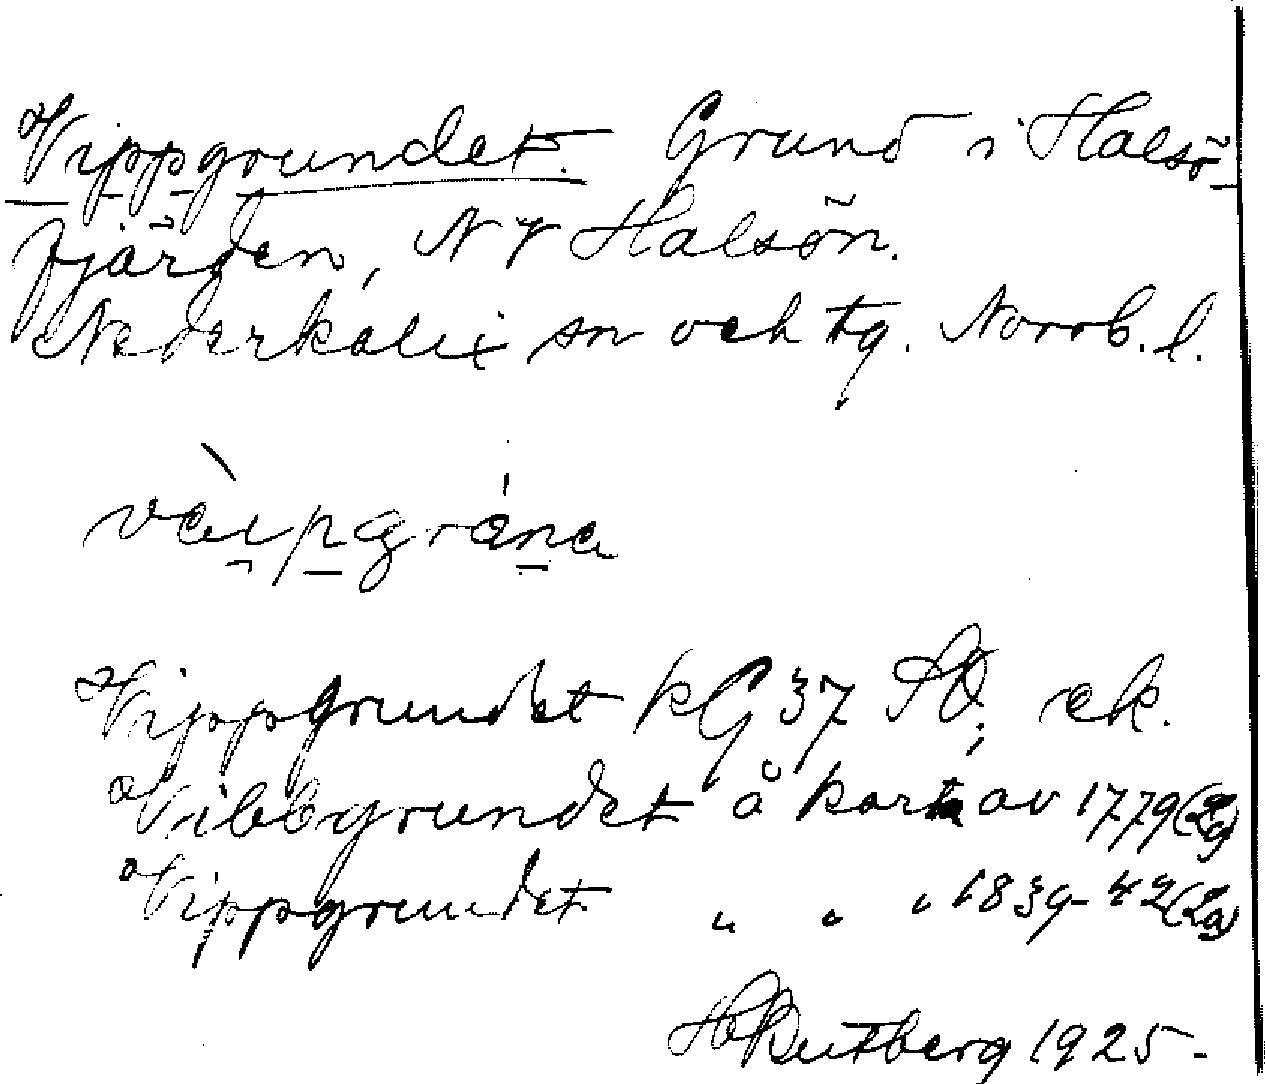 Vippgrundet. Grund i Halsö-
fjärden, NV Halsön.
Nederkalix sn och tg. Norrb. l.
vèipgrána
Vippgrundet kG 37 SO; ek.
Vibbgrundet å karta av 1779 (Lg)
Vippgrundet " " " 1839-42 (Lg)
H Rutberg 1925-